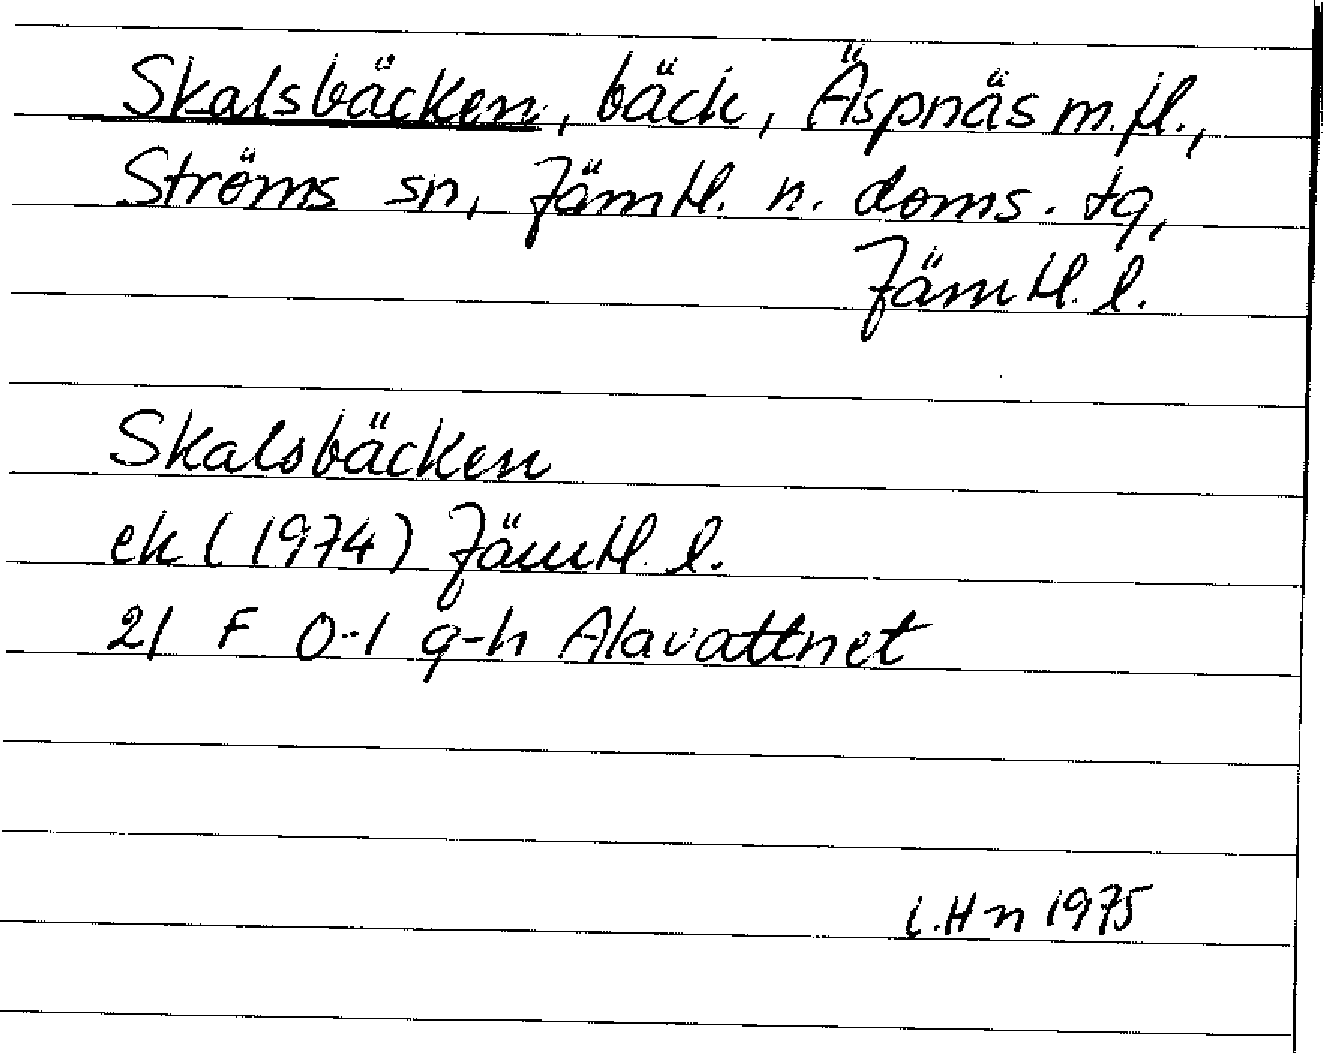 Skalsbäcken, bäck, Äspnäs m.fl.,
Ströms sn, Jämtl. n. doms. tg,
Jämtl. l.
Skalsbäcken
ek (1974) Jämtl. l.
21 F 0-1 g-h Alavattnet
L.Hn 1975